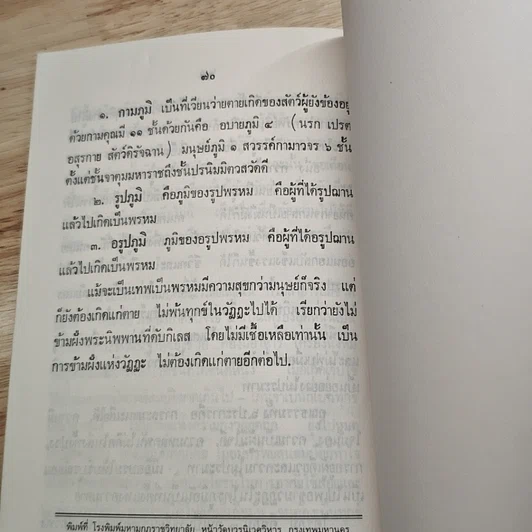 ๗๐
๑. กามภูมิ เป็นที่เวียนว่ายตายเกิดของสัตว์ผู้ยังข้องอยู่
ด้วยกามคุณมี ๑๑ ชั้นด้วยกันคือ อบายภูมิ ๔ (นรก เปรต
อสุรกาย สัตว์ดิรัจฉาน) มนุษย์ภูมิ ๑ สวรรค์กามาวจร ๖ ชั้น
ตั้งแต่ชั้นจาตุมมหาราชถึงชั้นปรนิมมิตวสวัตดี
๒. รูปภูมิ คือภูมิของรูปพรหม คือผู้ที่ได้รูปฌาน
แล้วไปเกิดเป็นพรหม
๓. อรูปภูมิ ภูมิของอรูปพรหม คือผู้ที่ได้อรูปฌาน
แล้วไปเกิดเป็นพรหม
แม้จะเป็นเทพเป็นพรหมมีความสุขกว่ามนุษย์ก็จริง แต่
ก็ยังต้องเกิดแก่ตาย ไม่พ้นทุกข์ในวัฏฏะไปได้ เรียกว่ายังไม่
ข้ามฝั่งพระนิพพานที่ดับกิเลส โดยไม่มีเชื้อเหลือเท่านั้น เป็น
การข้ามฝั่งแห่งวัฏฏะ ไม่ต้องเกิดแก่ตายอีกต่อไป.
พิมพ์ที่ โรงพิมพ์มหามกุฏราชวิทยาลัย หน้าวัดบวรนิเวศวิหาร กรุงเทพมหานคร